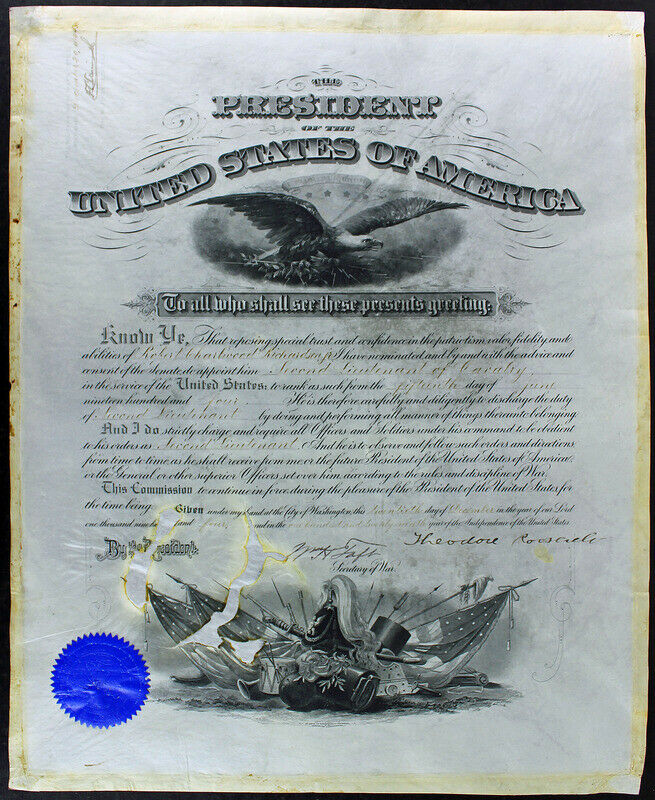 THE
PRESIDENT
OF THE
UNITED STATES OF AMERICA
To all who shall see these presents greeting:
Know Ye, That reposing special trust and confidence in the patriotism, valor, fidelity and
abilities of Robert Charlwood Richardson, Jr I have nominated, and by and with the advice and
consent of the Senate, do appoint him Second Lieutenant of Cavalry
in the service of the United States: to rank as such from the fifteenth day of June
nineteen hundred and four. He is therefore carefully and diligently to discharge the duty
of Second Lieutenant by doing and performing all manner of things thereunto belonging.
And I do strictly charge and require all Officers and Soldiers under his command to be obedient
to his orders as Second Lieutenant. And he is to observe and follow such orders and directions,
from time to time, as he shall receive from me, or the future President of the United States of America,
or the General or other superior Officers set over him, according to the rules and discipline of War.
This Commission to continue in force during the pleasure of the President of the United States for
the time being.
Given under my hand at the City of Washington, this twentieth day of December in the year of our Lord
one thousand nine hu and four, and in the one hundred and twenty ninth year of the Independence of the United States.
By the President:
Theodore Roosevelt
Wm H Taft
Secretary of War.